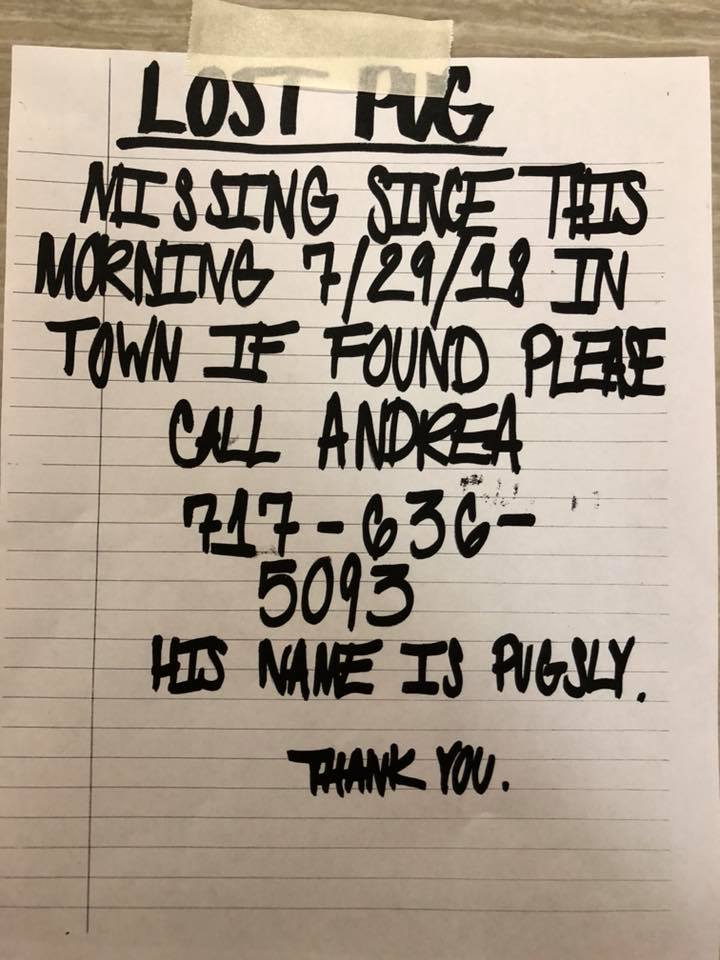 LOST PUG
MISSING SINCE THIS
MORNING 7/29/18 IN
TOWN IF FOUND PLEASE
CALL ANDREA
717-636-
5093
HIS NAME IS PUGSLY.
THANK YOU.